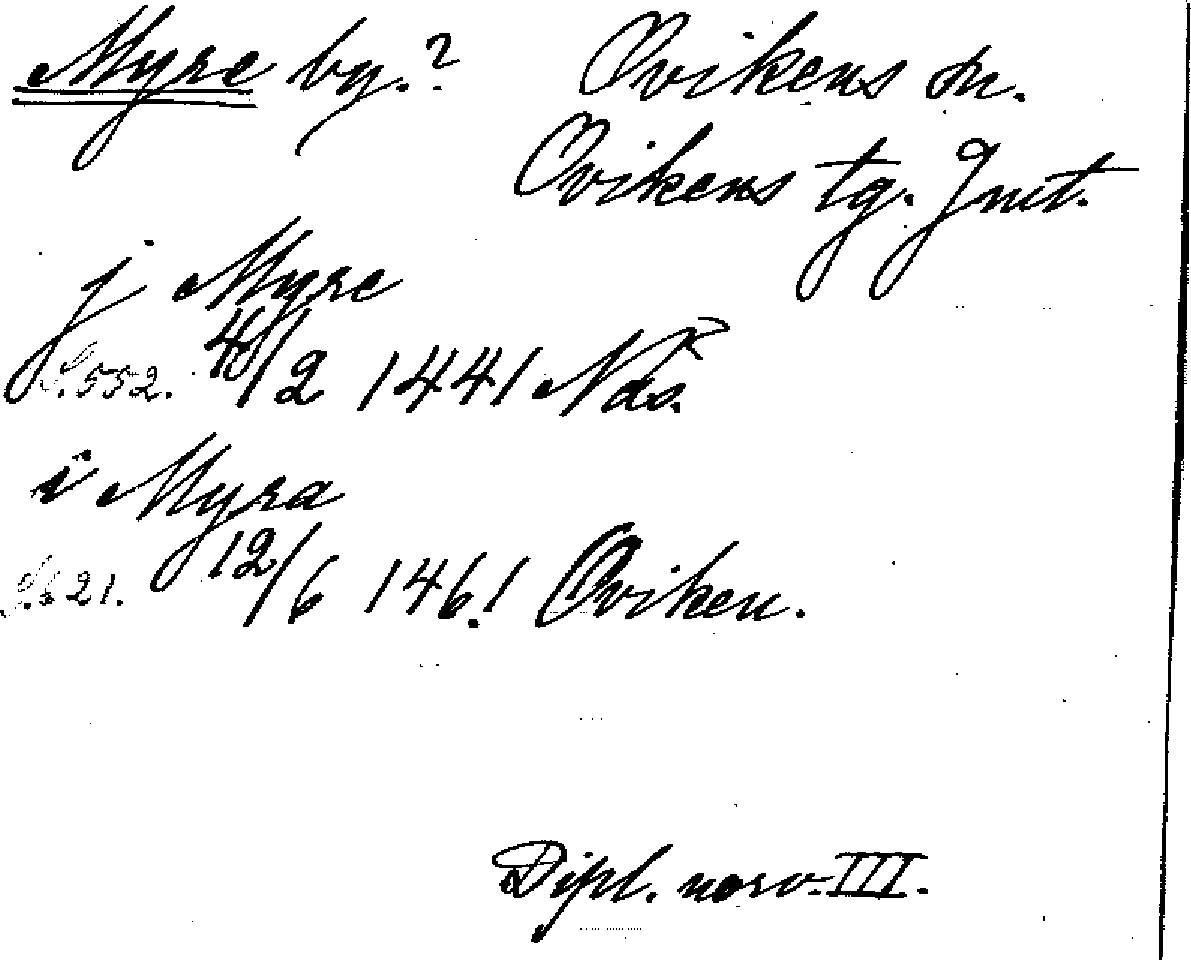 Myre by.? Ovikens sn.
Ovikens tg. Jmt.
j Myre
S. 552. 4/2 1441 Näs.
i Myra
S. 621. 12/6 1461 Oviken.
Dipl. norv. III.